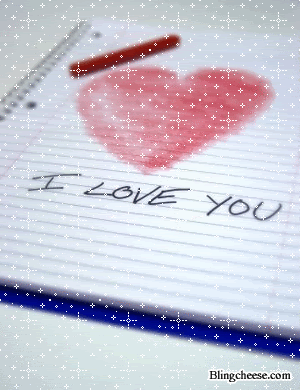 I LOVE YOU
Blingcheese.com